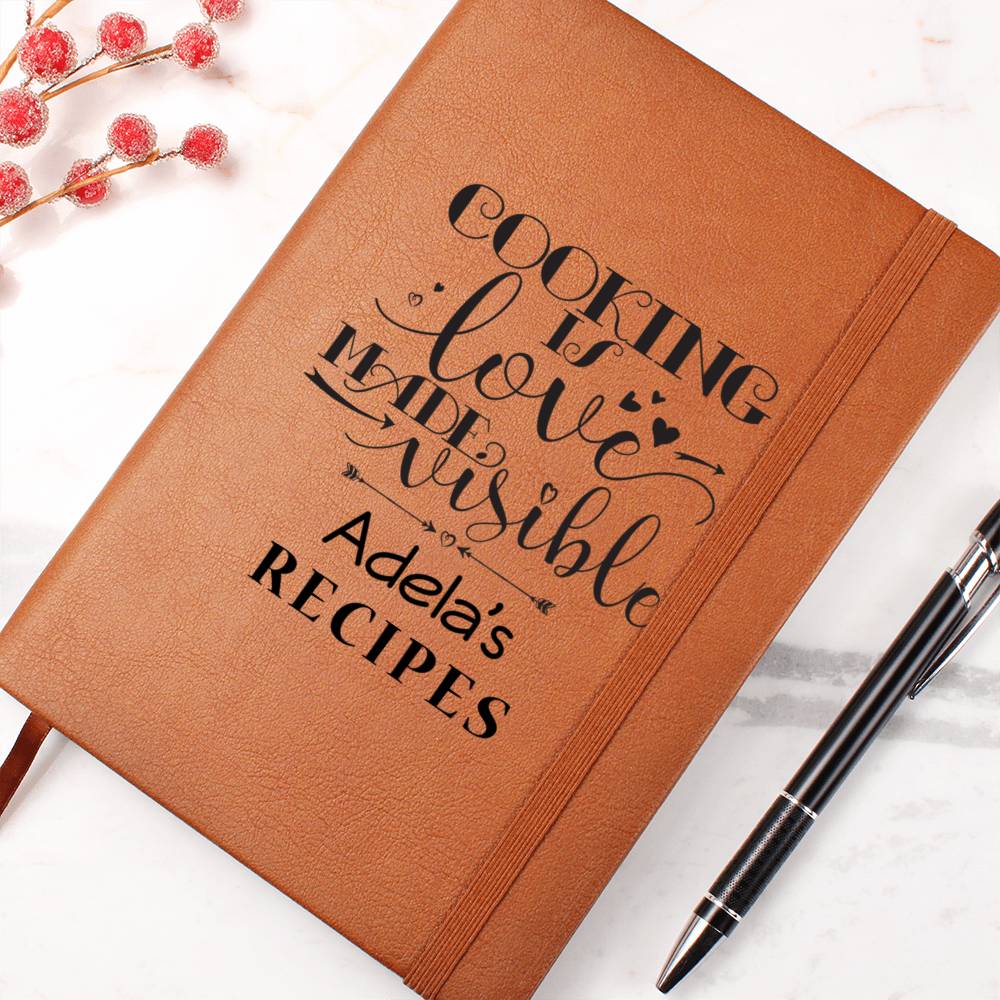 COOKING
IS
love
MADE
visible
Adela's
RECIPES